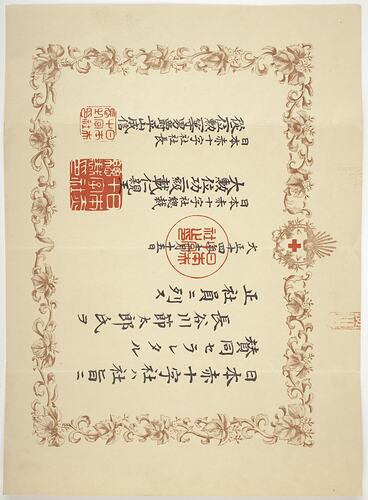 日本赤十字社ハ社旨ニ
賛同セラレタル
長谷川節太郎氏ヲ
正社員ニ列ス
大正 年四月 十五日
日本赤十字社總裁
大勲位功二級載仁親王
日本赤十字社社長
從二位勲一等男爵平山成信